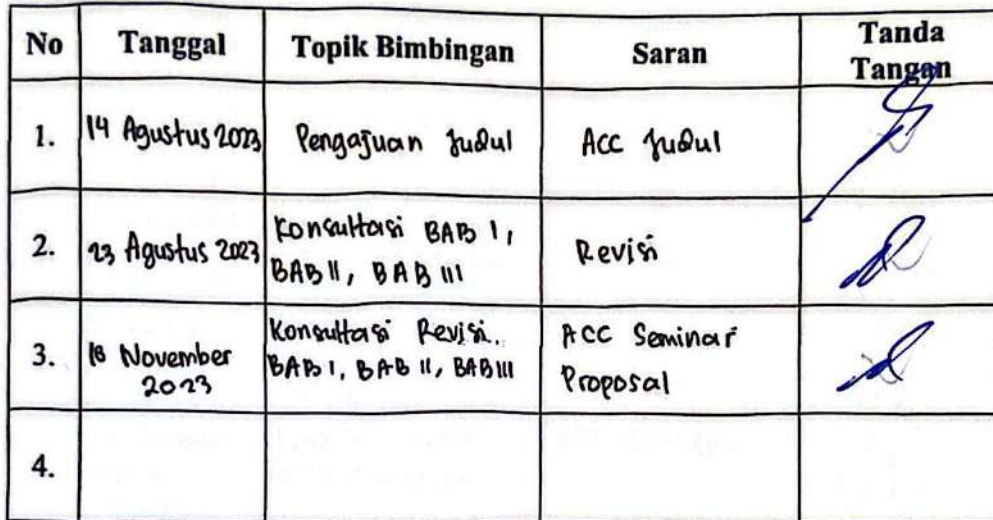 No Tanggal Topik Bimbingan Saran Tanda
Tangan
1. 14 Agustus 2023 Pengajuan Judul ACC Judul
2. 23 Agustus 2023 Konsultasi BAB I,
BAB II, BAB III
Revisi
3. 18 November
2023
Konsultasi Revisi.
BAB I, BAB II, BAB III
ACC Seminar
Proposal
4.